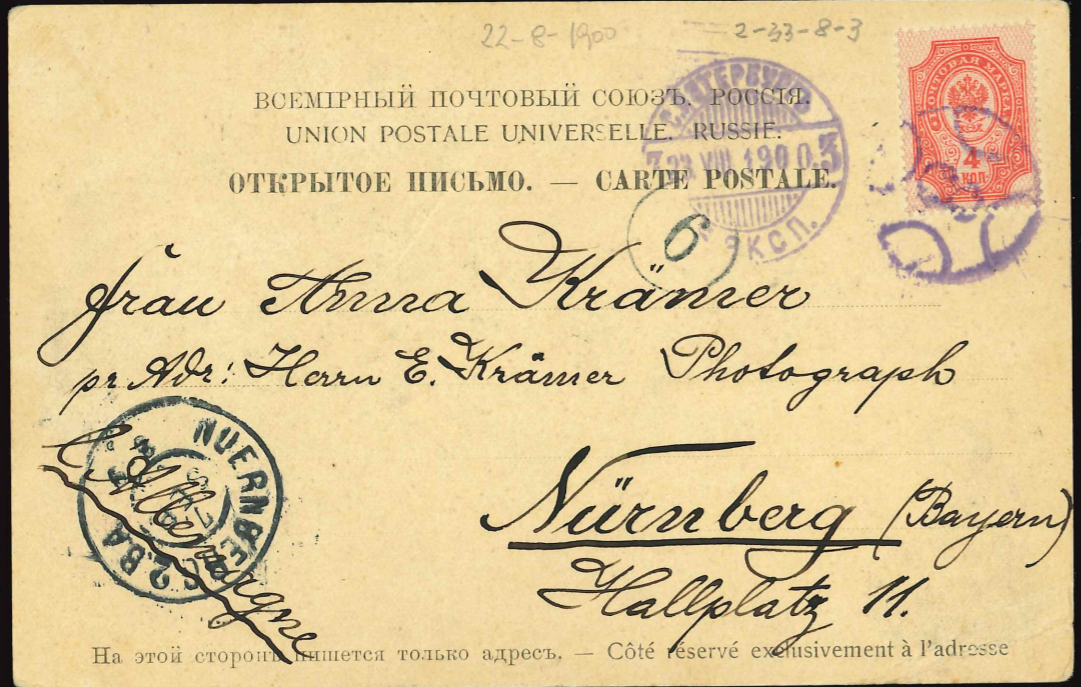 22-8-1900
2-33-8-3
ВСЕМІРНЫЙ ПОЧТОВЫЙ СОЮЗЪ. РОССІЯ.
UNION POSTALE UNIVERSELLE. RUSSIE.
ОТКРЫТОЕ ПИСЬМО. — CARTE POSTALE.
ПОЧТОВАЯ МАРКА
4
КОП.
С.ПЕТЕРБУРГЪ
3 VIII 1900. 3
ЭКСП.
6
Frau Anna Krämer
pr Adr: Herrn E. Krämer Photograph
Nürnberg (Bayern)
Hallplatz 11.
l'Allemagne
NUERNBERG
2.B.A
На этой сторонѣ пишется только адресъ. — Côté réservé exclusivement à l'adresse